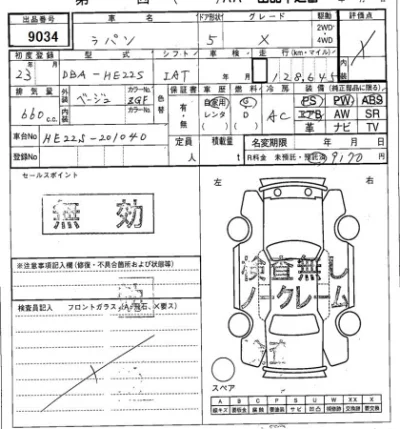 出品番号 車名 ドア形状 グレード 駆動 評価点
9034 ラパン 5 X 2WD・4WD
初度登録 型式 シフト 車検 走行(km・マイル) 内装
23年 月 DBA-HE22S IAT 年 月 128,645
排気量 外装 ベージュ カラーNo. ZGF 色替 保証書 車歴 燃料 冷房 装備(純正部品に限る)
660cc 内装 カラーNo. 有・無 自家用 レンタ ( ) G D ( ) AC PS PW ABS
エアB AW SR
革 ナビ TV
車台No HE22S-201040 定員 積載量 名変期限 年 月 日
登録No. 人 t R料金 未預託・預託済 9170 円
セールスポイント
左 右
無効
検査無し
ノークレーム
※注意事項記入欄(修復・不具合箇所および状態等)
検査員記入 フロントガラス(A・飛石、X・要ス)
スペア
A B C P S U W X XX